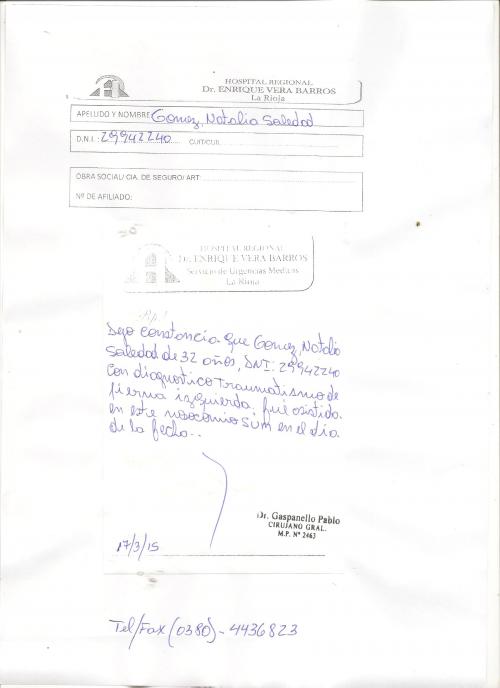 HOSPITAL REGIONAL
Dr. ENRIQUE VERA BARROS
La Rioja
APELLIDO Y NOMBRE: Gomez, Natalia Soledad
D.N.I.: 29942240 CUIT/CUIL
OBRA SOCIAL/ CIA. DE SEGURO/ ART:
Nº DE AFILIADO:
HOSPITAL REGIONAL
Dr. ENRIQUE VERA BARROS
Servicio de Urgencias Medicas
La Rioja
Rp/
Dejo constancia que Gomez, Natalia
Soledad de 32 años, DNI: 29942240
con diagnostico Traumatismo de
pierna izquierda, fue asistida
en este nosocomio SUM en el dia
de la fecha..
Dr. Gaspanello Pablo
CIRUJANO GRAL.
M.P. Nº 2463
17/3/15
Tel/Fax (0380) - 4436823